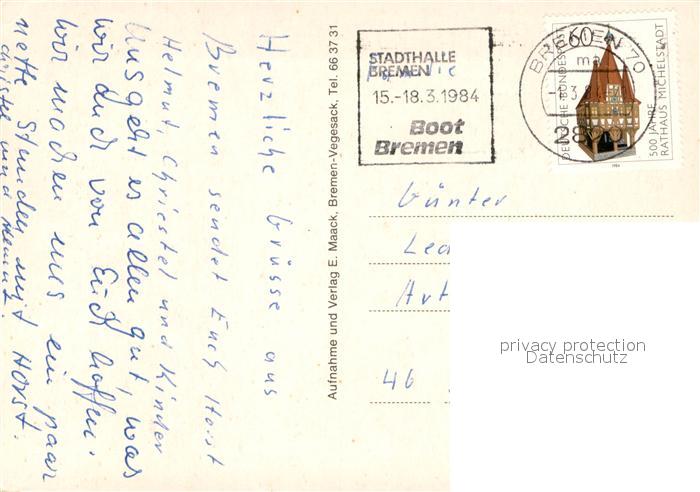 Herzliche Grüsse aus
Bremen sendet Euch Horst
Helmut, Christel und Kinder
Uns geht es allen gut, was
wir auch von Euch hoffen.
Wir machen uns ein paar
nette Stunden mit Horst.
Christel und Helmut.
Aufnahme und Verlag E. Maack, Bremen-Vegesack, Tel. 66 37 31
STADTHALLE
BREMEN
15.-18.3.1984
Boot
Bremen
BREMEN 70
ma
28
60
DEUTSCHE BUNDESPOST
500 JAHRE
RATHAUS MICHELSTADT
1984
Familie
Günter
Led
Art
46
privacy protection
Datenschutz